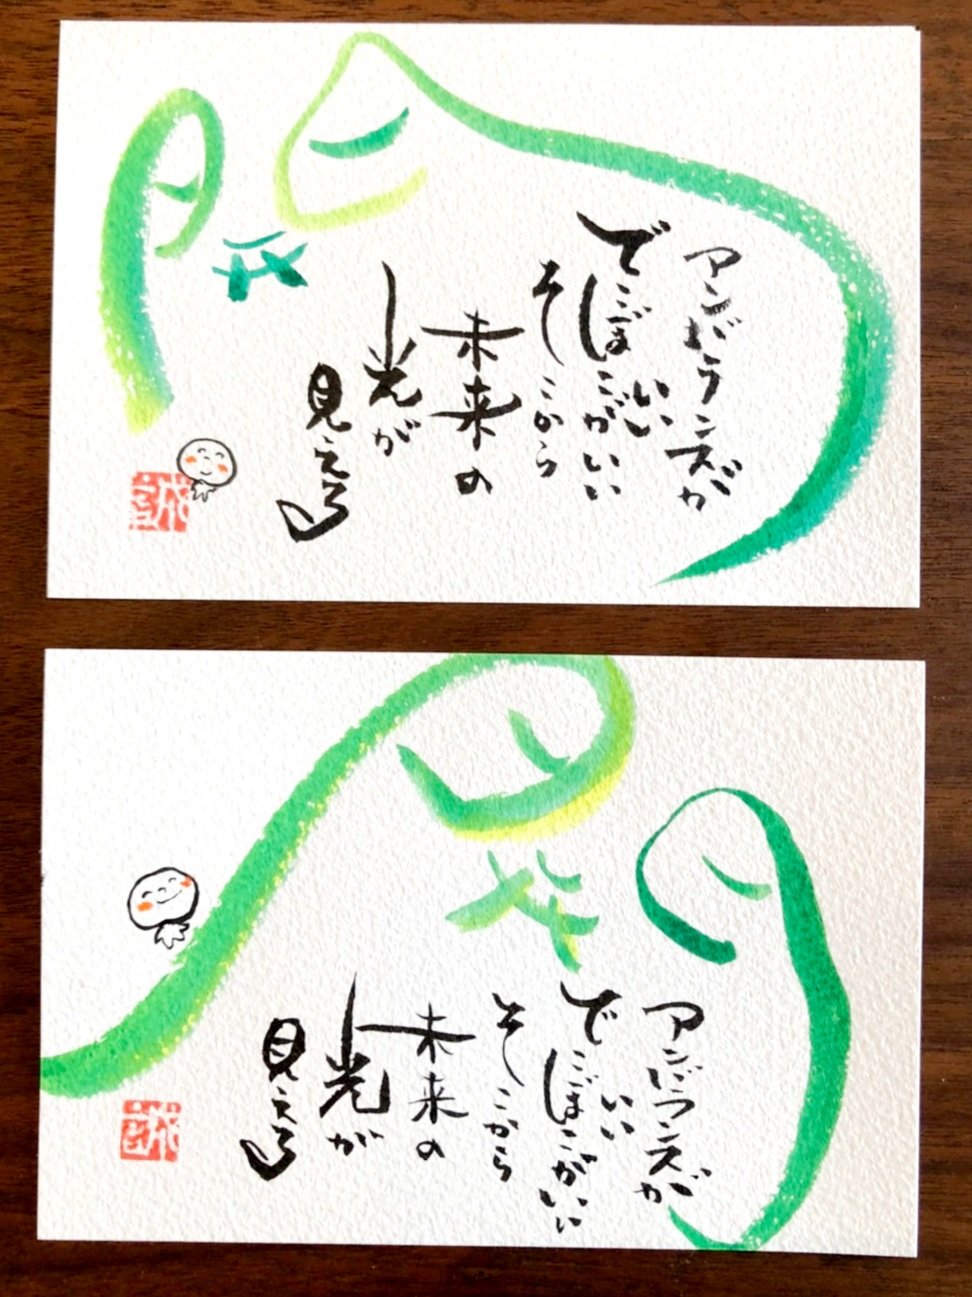 アンバランスが
いい
でこぼこがいい
そこから
未来の
光が
見える
誠
アンバランスが
いい
でこぼこがいい
そこから
未来の
光が
見える
誠